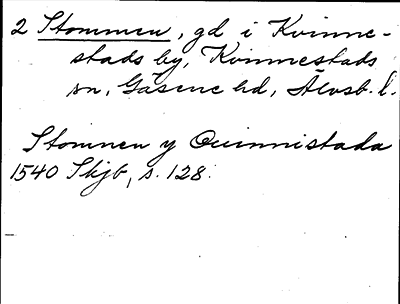 2 Stommen, gd i Kvinne-
stads by, Kvinnestads
sn, Gäsene hd, Älvsb. l.
Stomnen y Quinnistada
1540 Skjb, s. 128.